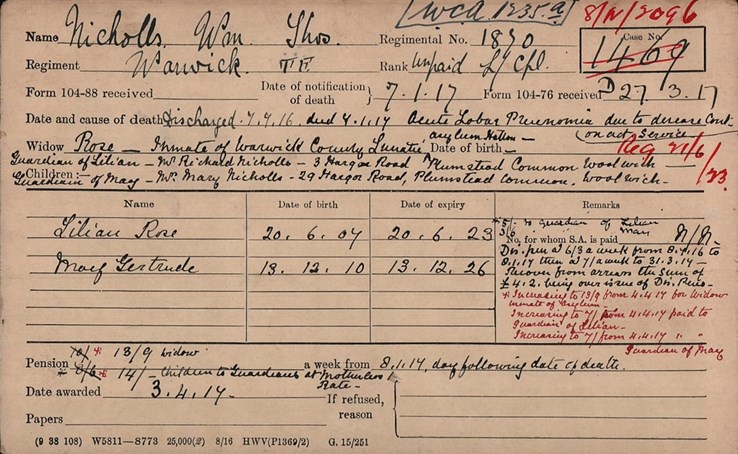 [WCA 1235.a]
8/W/2096
Name Nicholls. Wm. Thos.
Regimental No. 1830
Case No. 1469
Regiment Warwick. TF
Rank Unpaid L/Cpl.
Form 104-88 received
Date of notification of death } 7.1.17
Form 104-76 received D 27.3.17
Date and cause of death Discharged. 7.4.16. died 7.1.17 Acute Lobar Pneumonia due to disease Cont-
on act. Service
Widow Rose — Inmate of Warwick County Lunatic asylum Hatton — Date of birth —
Reg 21/6/23.
Guardian of Lilian — Mr Richard Nicholls — 3 Hargor Road Plumstead Common Woolwich —
Children:— Guardian of May — Mrs. Mary Nicholls - 29 Hargor Road, Plumstead Common. Woolwich —
Name Date of birth Date of expiry Remarks
Lilian Rose 20.6.07 20.6.23
May Gertrude 13.12.10 13.12.26
5/- to guardian of Lilian
3/6 May
No. for whom S.A. is paid N/N.
Dis. pen at 6/3 a week from 8.4.16 to
8.1.17 then at 7/ a week to 31.3.17 —
Recover from arrears the sum of
£4.2. being our issue of Dis. Pens —
* Increasing to 13/9 from 4.4.17 for widow
inmate of Asylum —
Increasing to 7/ from 4.4.17 paid to
Guardian of Lilian —
Increasing to 7/ from 4.4.17 " "
Guardian of May
Pension 10/- * 13/9 widow
* 8/6 * 14/- children to Guardians at Motherless Rate —
a week from 8.1.17, day following date of death.
Date awarded 3.4.17.
If refused, reason
Papers
(9 38 108) W5811—8773 25,000(2) 8/16 HWV(P1369/2) G. 15/251